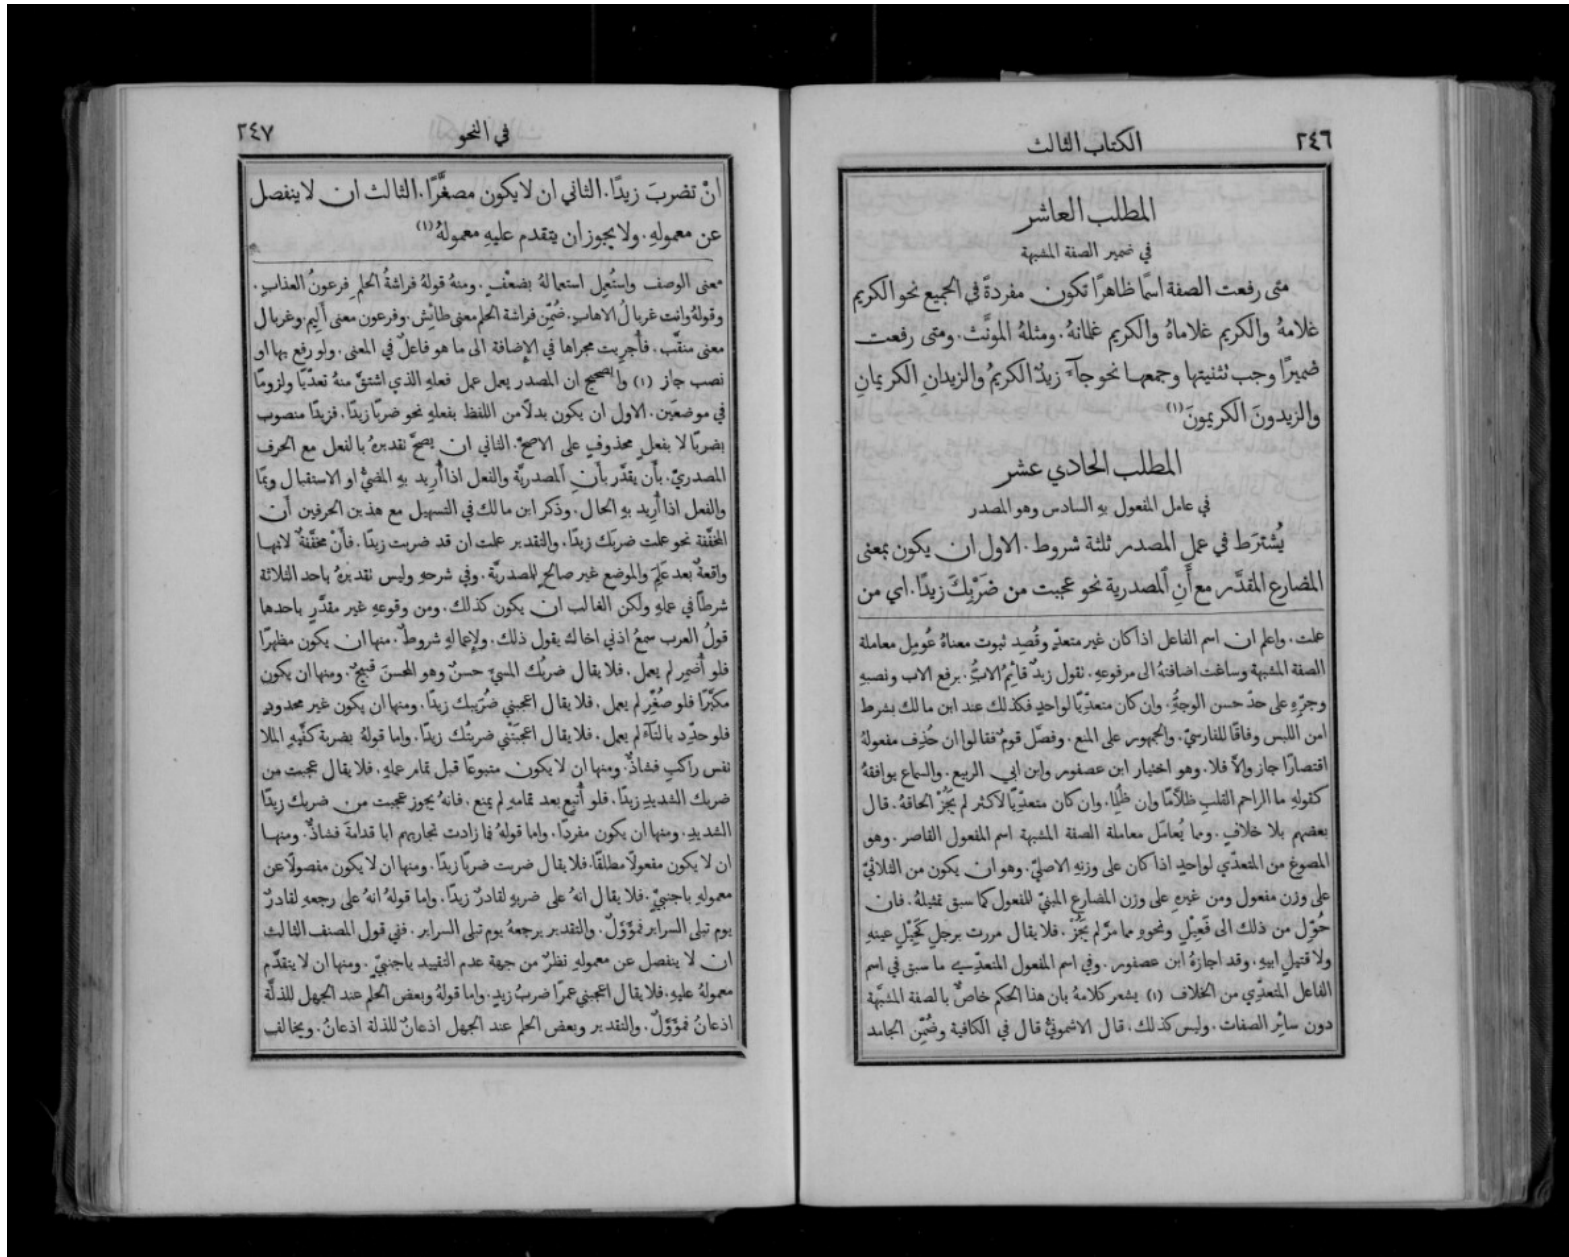 ٢٤٦
الكتاب الثالث
المطلب العاشر
في ضمير الصفة المشبهة
متى رفعت الصفة اسمًا ظاهرًا تكون مفردةً في الجميع نحو الكريم
غلامهُ والكريم غلاماهُ والكريم غلمانهُ. ومثلهُ المونَّث. ومتى رفعت
ضميرًا وجب تثنيتها وجمعها نحو جآءَ زيدٌ الكريمُ والزيدانِ الكريمانِ
والزيدونَ الكريمونَ (١)
المطلب الحادي عشر
في عامل المفعول بهِ السادس وهو المصدر
يُشترَط في عمل المصدر ثلثة شروط. الاول ان يكون بمعنى
المضارع المقدَّر مع أَنِ ٱلمصدرية نحو عجبت من ضَرْبِكَ زيدًا. اي من
علت. واعلم ان اسم الفاعل اذا كان غير متعدٍّ وقُصِد ثبوت معناهُ عُومِل معاملة
الصفة المشبهة وساغت اضافتهُ الى مرفوعهِ. نقول زيدٌ قائِمُ الابُِ. برفع الاب ونصبهِ
وجرّهِ على حدّ حسن الوجهُِ. وان كان متعدّيًا لواحدٍ فكذلك عند ابن مالك بشرط
امن اللبس وفاقًا للفارسيّ. والجمهور على المنع. وفصَّل قومٌ فقالوا ان حُذِف مفعولهُ
اقتصارًا جاز والاَّ فلا. وهو اختيار ابن عصفور وابن ابي الربيع. والسماع يوافقهُ
كقولهِ ما الراحم القلبِ ظلَّامًا وان ظُلِما. وان كان متعدّيًا لاكثر لم يَجُزْ الحاقهُ. قال
بعضهم بلا خلافٍ. ومما يُعامَل معاملة الصفة المشبهة اسم المفعول القاصر. وهو
المصوغ من المتعدّي لواحدٍ اذا كان على وزنهِ الاصليّ. وهو ان يكون من الثلاثيّ
على وزن مفعول ومن غيرهِ على وزن المضارع المبنيّ للمفعول كما سبق تمثيلهُ. فان
حُوِّل من ذلك الى فَعِيْلٍ ونحوهِ مما مرَّ لم يَجُزْ. فلا يقال مررت برجلٍ كَحِيْلِ عينهِ
ولا قتيلِ ابيهِ. وقد اجازهُ ابن عصفور. وفي اسم المفعول المتعدّي ما سبق في اسم
الفاعل المتعدّي من الخلاف (١) يشعر كلامهُ بان هذا الحكم خاصٌّ بالصفة المشبَّهة
دون سائِر الصفات. وليس كذلك. قال الاشمونيُّ قال في الكافية وضُمِّن الجامد
٢٤٧
في النحو
انْ تضربَ زيدًا. الثاني ان لا يكون مصغَّرًا. الثالث ان لا ينفصل
عن معمولهِ. ولا يجوز ان يتقدم عليهِ معمولهُ (١)
معنى الوصف واستُعمِل استعمالهُ بضعْفٍ. ومنهُ قولهُ فراشةُ الحلم فرعونُ العذابِ.
وقولهُ وانت غربالُ الاهابِ. ضُمِّن فراشة الحلم معنى طائِش. وفرعون معنى أليم. وغربال
معنى منقَّب. فأُجرِيت مجراها في الإضافة الى ما هو فاعلٌ في المعنى. ولو رفع بها او
نصب جاز (١) والصحيح ان المصدر يعمل عمل فعلهِ الذي اشتقَّ منهُ تعدّيًا ولزومًا
في موضعَين. الاول ان يكون بدلًا من اللفظ بفعلهِ نحو ضربًا زيدًا. فزيدًا منصوب
بضربًا لا بفعلٍ محذوفٍ على الاصحّ. الثاني ان يصحَّ تقديرهُ بالفعل مع الحرف
المصدريّ. بأن يقدَّر بأَنِ ٱلمصدريَّة والفعل اذا أُرِيد بهِ المضيُّ او الاستقبال وبمَا
والفعل اذا أُرِيد بهِ الحال. وذكر ابن مالك في التسهيل مع هذين الحرفين أَن
المخفَّفة نحو علمت ضربَك زيدًا. والتقدير علمت ان قد ضربت زيدًا. فأَنْ مخفَّفةٌ لانها
واقعةٌ بعد عَلِمَ والموضع غير صالحٍ للمصدريَّة. وفي شرحهِ وليس تقديرهُ باحد الثلاثة
شرطًا في عملهِ ولكن الغالب ان يكون كذلك. ومن وقوعهِ غير مقدَّرٍ باحدها
قولُ العرب سمعُ اذني اخاك يقول ذلك. ولإعمالهِ شروطٌ. منها ان يكون مظهرًا
فلو أُضمِر لم يعمل. فلا يقال ضربُك المسيَ حسنٌ وهو المحسنَ قبيحٌ. ومنها ان يكون
مكبَّرًا فلو صُغِّر لم يعمل. فلا يقال اعجبني ضُرَيبك زيدًا. ومنها ان يكون غير محدودٍ
فلو حدِّد بالتآءِ لم يعمل. فلا يقال اعجبَتْني ضربتُك زيدًا. واما قولهُ بضربة كفَّيهِ الملا
نفس راكبٍ فشاذٌّ. ومنها ان لا يكون متبوعًا قبل تمام عملهِ. فلا يقال عجبت من
ضربك الشديدِ زيدًا. فلو أُتبِع بعد تمامهِ لم يمنع. فانهُ يجوز عجبت من ضربك زيدًا
الشديدِ. ومنها ان يكون مفردًا. واما قولهُ فما زادت تجاربهم ابا قدامةَ فشاذٌّ. ومنها
ان لا يكون مفعولًا مطلقًا. فلا يقال ضربت ضربًا زيدًا. ومنها ان لا يكون مفصولًا عن
معمولهِ باجنبيٍّ. فلا يقال انهُ على ضربهِ لقادرٌ زيدًا. واما قولهُ انهُ على رجعهِ لقادرٌ
يوم تبلى السراير فمؤَوَّلٌ. والتقدير يرجعهُ يوم تبلى السراير. ففي قول المصنف الثالث
ان لا ينفصل عن معمولهِ نظرٌ من جهة عدم التقييد باجنبيٍّ. ومنها ان لا يتقدَّم
معمولهُ عليهِ. فلا يقال اعجبني عمرًا ضربُ زيدٍ. واما قولهُ وبعض الحلم عند الجهل للذلَّة
اذعانُ فمؤَوَّلٌ. والتقدير وبعض الحلم عند الجهل اذعانٌ للذلة اذعانُ. ويخالف